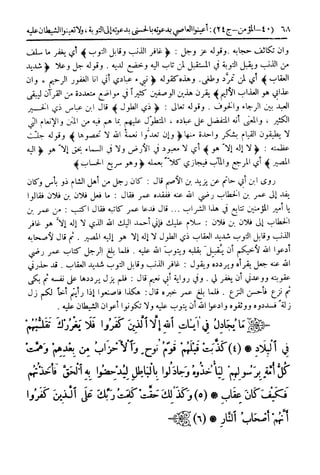 ٦٨ (٤٠-المؤمن-ج٢٤) : أعينوا العاصي بدعوته بالحسنى بدعوته إلى التوبة، ولا تعينوا الشيطان عليه
وإن تكاثف حجابه. وقوله عز وجل : ﴿غافر الذنب وقابل التوب﴾ أي يغفر ما سلف
من الذنب ويقبل التوبة في المستقبل لمن تاب إليه وخضع لديه. وقوله جل وعلا ﴿شديد
العقاب﴾ أي لمن تمرد وطغى. وهذه كقوله ﴿نبىء عبادي أني أنا الغفور الرحيم * وأن
عذابي هو العذاب الأليم﴾ يقرن هذين الوصفين كثيراً في مواضع متعددة من القرآن ليبقى
العبد بين الرجاء والخوف. وقوله تعالى : ﴿ذي الطول﴾ قال ابن عباس ذي الخير
الكثير. والمعنى أنه المتفضل على عباده، المتطول عليهم بما هم فيه من المنن والإنعام التي
لا يطيقون القيام بشكر واحدة منها ﴿وإن تعدوا نعمة الله لا تحصوها﴾ وقوله جلت
عظمته : ﴿لا إله إلا هو﴾ أي لا معبود في الأرض ولا في السماء بحق إلا هو ﴿إليه
المصير﴾ أي المرجع والمآب فيجازي كلاً بعمله ﴿وهو سريع الحساب﴾
روى ابن أبي حاتم عن يزيد بن الأصم قال : كان رجل من أهل الشام ذو بأس وكان
يفد إلى عمر بن الخطاب رضي الله عنه ففقده عمر فقال : ما فعل فلان بن فلان فقالوا
يا أمير المؤمنين تتابع في هذا الشراب ... قال فدعا عمر كاتبه فقال اكتب : من عمر بن
الخطاب إلى فلان بن فلان : سلام عليك فإني أحمد إليك الله الذي لا إله إلا هو غافر
الذنب وقابل التوب شديد العقاب ذي الطول لا إله إلا هو إليه المصير. ثم قال لأصحابه
أدعوا الله لأخيكم أن يُقبِلَ بقلبه ويتوب الله عليه. فلما بلغ الرجل كتاب عمر رضي
الله عنه جعل يقرأه ويردده ويقول : غافر الذنب وقابل التوب شديد العقاب. قد حذرني
عقوبته ووعدني أن يغفر لي. وفي رواية أبي نعيم قال : فلم يزل يرددها على نفسه ثم بكى
ثم نزع فأحسن النزع. فلما بلغ عمر خبره قال : هكذا فاصنعوا إذا رأيتم أخاً لكم زل
زلة فسددوه ووثقوه وادعوا الله أن يتوب عليه ولا تكونوا أعوان الشيطان عليه.
مَا يُجَادِلُ فِي آيَاتِ اللَّهِ إِلَّا الَّذِينَ كَفَرُوا فَلَا يَغْرُرْكَ تَقَلُّبُهُمْ
فِي الْبِلَادِ (٤) كَذَّبَتْ قَبْلَهُمْ قَوْمُ نُوحٍ وَالْأَحْزَابُ مِن بَعْدِهِمْ وَهَمَّتْ
كُلُّ أُمَّةٍ بِرَسُولِهِمْ لِيَأْخُذُوهُ وَجَادَلُوا بِالْبَاطِلِ لِيُدْحِضُوا بِهِ الْحَقَّ فَأَخَذْتُهُمْ
فَكَيْفَ كَانَ عِقَابِ (٥) وَكَذَلِكَ حَقَّتْ كَلِمَتُ رَبِّكَ عَلَى الَّذِينَ كَفَرُوا
أَنَّهُمْ أَصْحَابُ النَّارِ (٦)